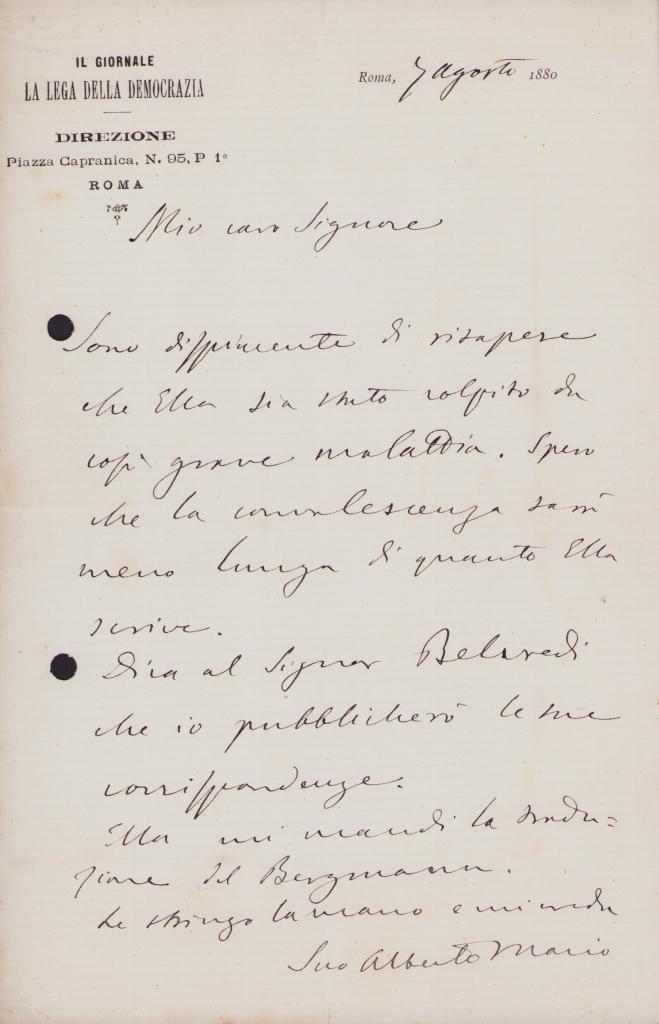 IL GIORNALE
LA LEGA DELLA DEMOCRAZIA
DIREZIONE
Piazza Capranica, N. 95, P 1°
ROMA
Roma, 7 agosto 1880
Mio caro Signore
Sono dispiacente di risapere
che Ella sia stato colpito da
così grave malattia. Spero
che la convalescenza sarà
meno lunga di quanto Ella
scrive.
Dica al Signor
che io pubblicherò le sue
corrispondenze.
Ella mi mandi la tradu=
zione del Bergmann.
Le stringo la mano e mi creda
Suo Alberto Mario